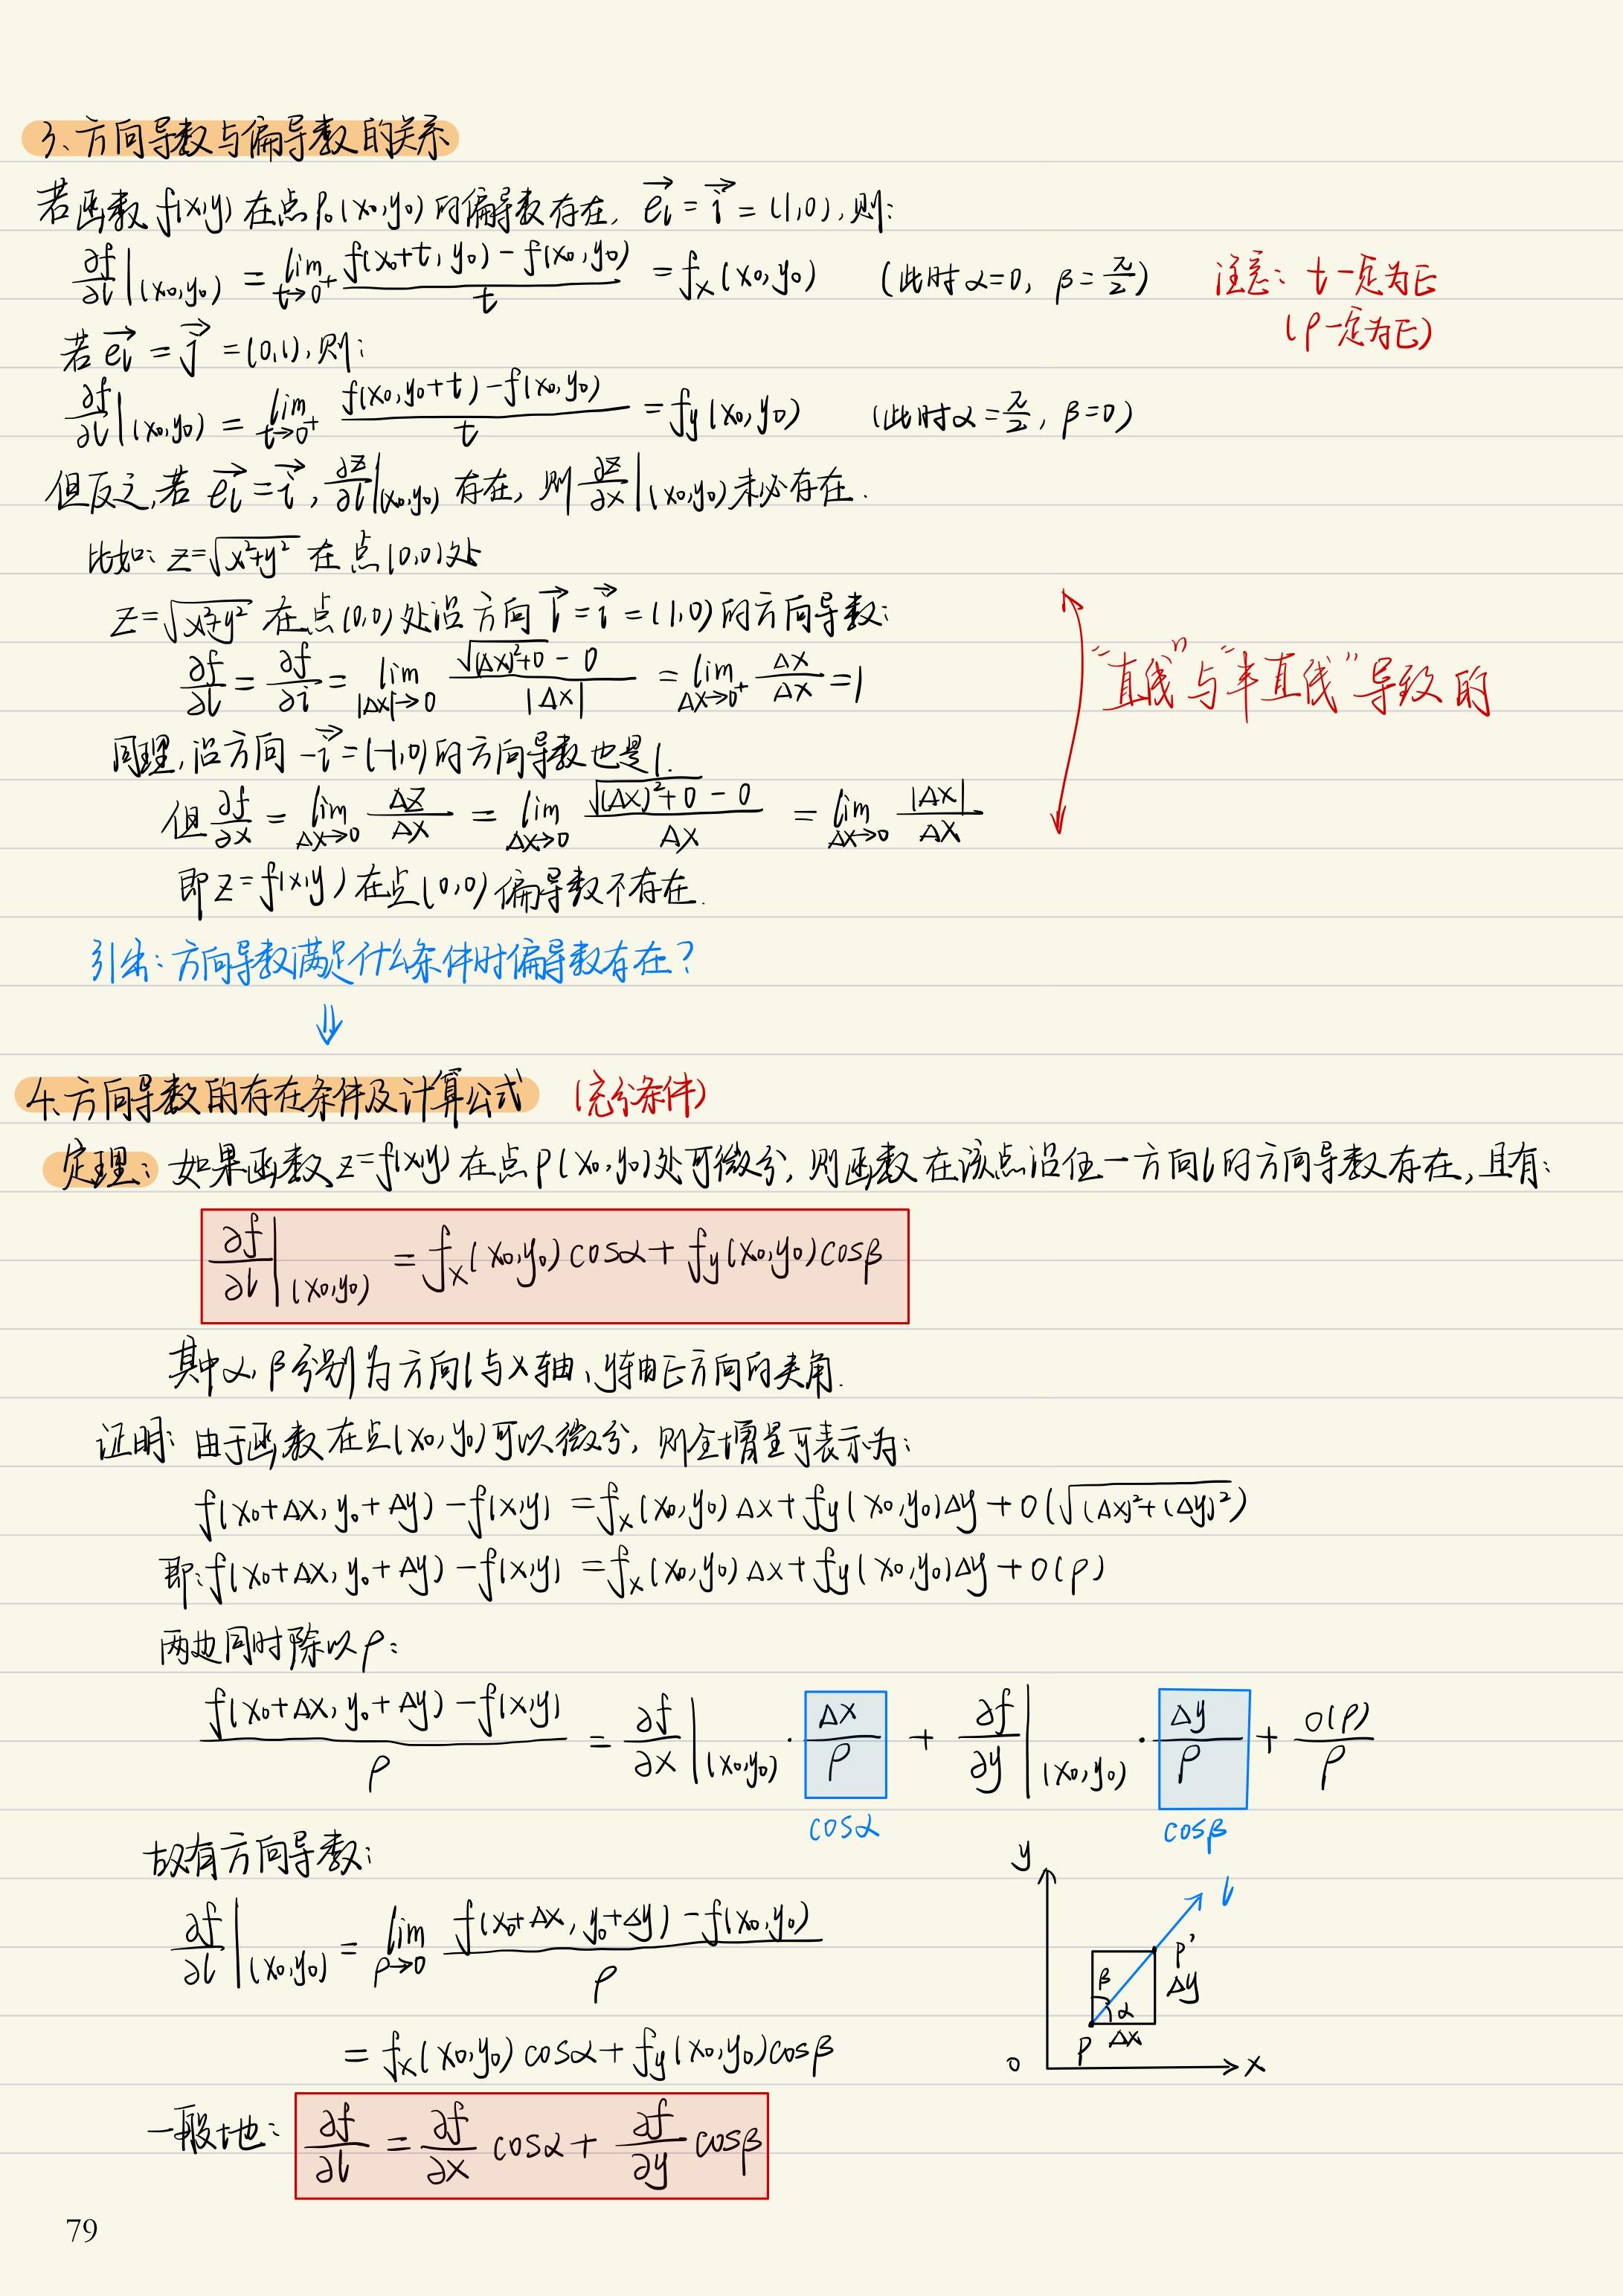 3、方向导数与偏导数的关系
若函数 f(x,y) 在点 P₀(x₀,y₀) 的偏导数存在, e⃗ₗ = i⃗ = (1,0), 则:
∂f/∂l|(x₀,y₀) = lim t→0⁺ [f(x₀+t, y₀) - f(x₀,y₀)]/t = fₓ(x₀,y₀) (此时 α=0, β=π/2) 注意: t一定为正
(ρ一定为正)
若 e⃗ₗ = j⃗ = (0,1), 则:
∂f/∂l|(x₀,y₀) = lim t→0⁺ [f(x₀,y₀+t) - f(x₀,y₀)]/t = f_y(x₀,y₀) (此时 α=π/2, β=0)
但反之,若 e⃗ₗ = i⃗, ∂z/∂l|(x₀,y₀) 存在, 则 ∂z/∂x|(x₀,y₀) 未必存在.
比如: z=√(x²+y²) 在点(0,0)处
z=√(x²+y²) 在点(0,0)处沿方向 l⃗ = i⃗ = (1,0) 的方向导数:
∂f/∂l = ∂f/∂i = lim |Δx|→0 [√((Δx)²+0) - 0]/|Δx| = lim Δx→0⁺ Δx/Δx = 1
“直线”与“半直线”导致的
同理, 沿方向 -i⃗ = (-1,0) 的方向导数也是1.
但 ∂f/∂x = lim Δx→0 Δz/Δx = lim Δx→0 [√((Δx)²+0) - 0]/Δx = lim Δx→0 |Δx|/Δx
即 z=f(x,y) 在点(0,0)偏导数不存在.
引出: 方向导数满足什么条件时偏导数存在?
⇓
4、方向导数的存在条件及计算公式 (充分条件)
定理: 如果函数 z=f(x,y) 在点 P(x₀,y₀)处可微分, 则函数在该点沿任一方向l的方向导数存在, 且有:
∂f/∂l|(x₀,y₀) = fₓ(x₀,y₀)cosα + f_y(x₀,y₀)cosβ
其中α, β分别为方向l与x轴、y轴正方向的夹角.
证明: 由于函数在点(x₀,y₀)可以微分, 则全增量可表示为:
f(x₀+Δx, y₀+Δy) - f(x,y) = fₓ(x₀,y₀)Δx + f_y(x₀,y₀)Δy + o(√((Δx)²+(Δy)²))
即: f(x₀+Δx, y₀+Δy) - f(x,y) = fₓ(x₀,y₀)Δx + f_y(x₀,y₀)Δy + o(ρ)
两边同时除以ρ:
[f(x₀+Δx, y₀+Δy) - f(x,y)]/ρ = ∂f/∂x|(x₀,y₀) · Δx/ρ + ∂f/∂y|(x₀,y₀) · Δy/ρ + o(ρ)/ρ
cosα cosβ
故有方向导数:
∂f/∂l|(x₀,y₀) = lim ρ→0 [f(x₀+Δx, y₀+Δy) - f(x₀,y₀)]/ρ
= fₓ(x₀,y₀)cosα + f_y(x₀,y₀)cosβ
y
l
P'
β
Δy
α
P Δx
0 x
一般地: ∂f/∂l = ∂f/∂x cosα + ∂f/∂y cosβ
79